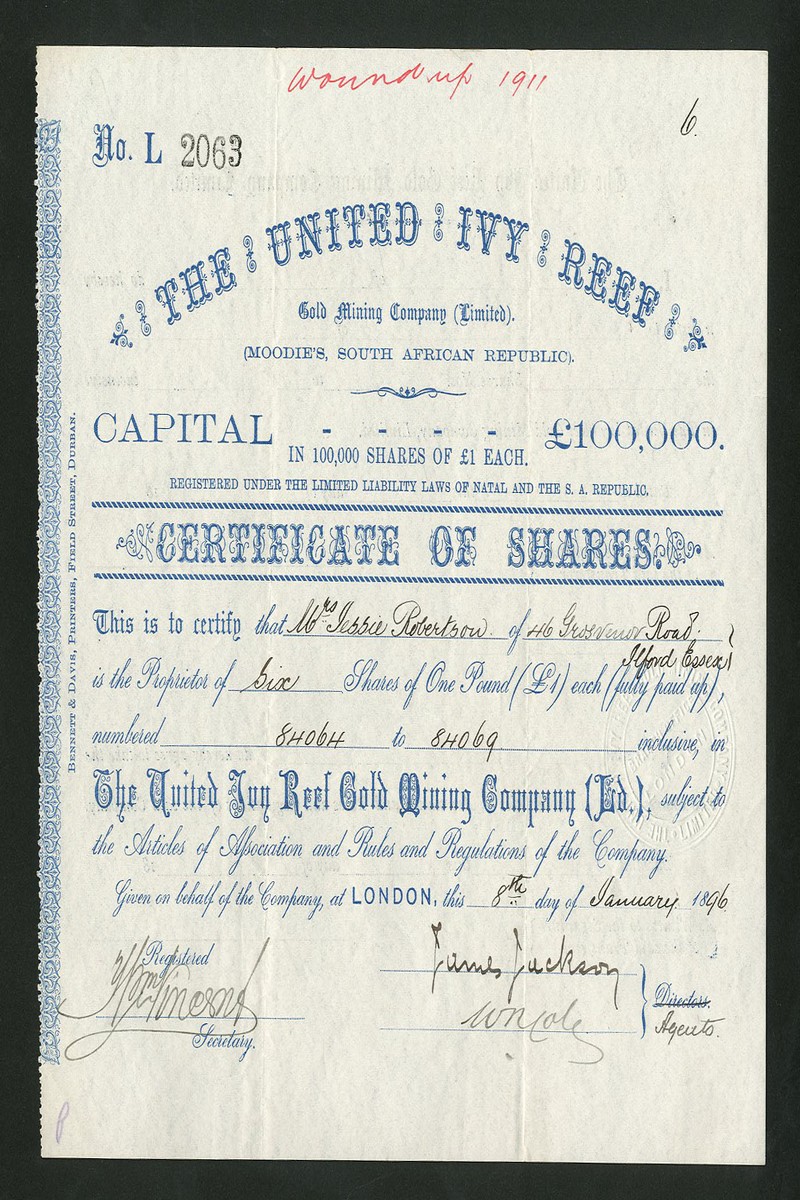 Wound up 1911
6.
No. L 2063
THE UNITED IVY REEF
Gold Mining Company (Limited).
(MOODIE'S, SOUTH AFRICAN REPUBLIC).
CAPITAL - - - - £100,000.
IN 100,000 SHARES OF £1 EACH.
REGISTERED UNDER THE LIMITED LIABILITY LAWS OF NATAL AND THE S. A. REPUBLIC.
CERTIFICATE OF SHARES.
This is to certify that Mrs Jessie Robertson of 46 Grosvenor Road
Ilford Essex
is the Proprietor of Six Shares of One Pound (£1) each (fully paid up),
numbered 84064 to 84069 inclusive, in
The United Ivy Reef Gold Mining Company (Ld.), subject to
the Articles of Association and Rules and Regulations of the Company.
Given on behalf of the Company, at LONDON, this 8th day of January 1896
Registered
James Jackson
Directors.
Agents.
Secretary.
BENNETT & DAVIS, PRINTERS, FIELD STREET, DURBAN.